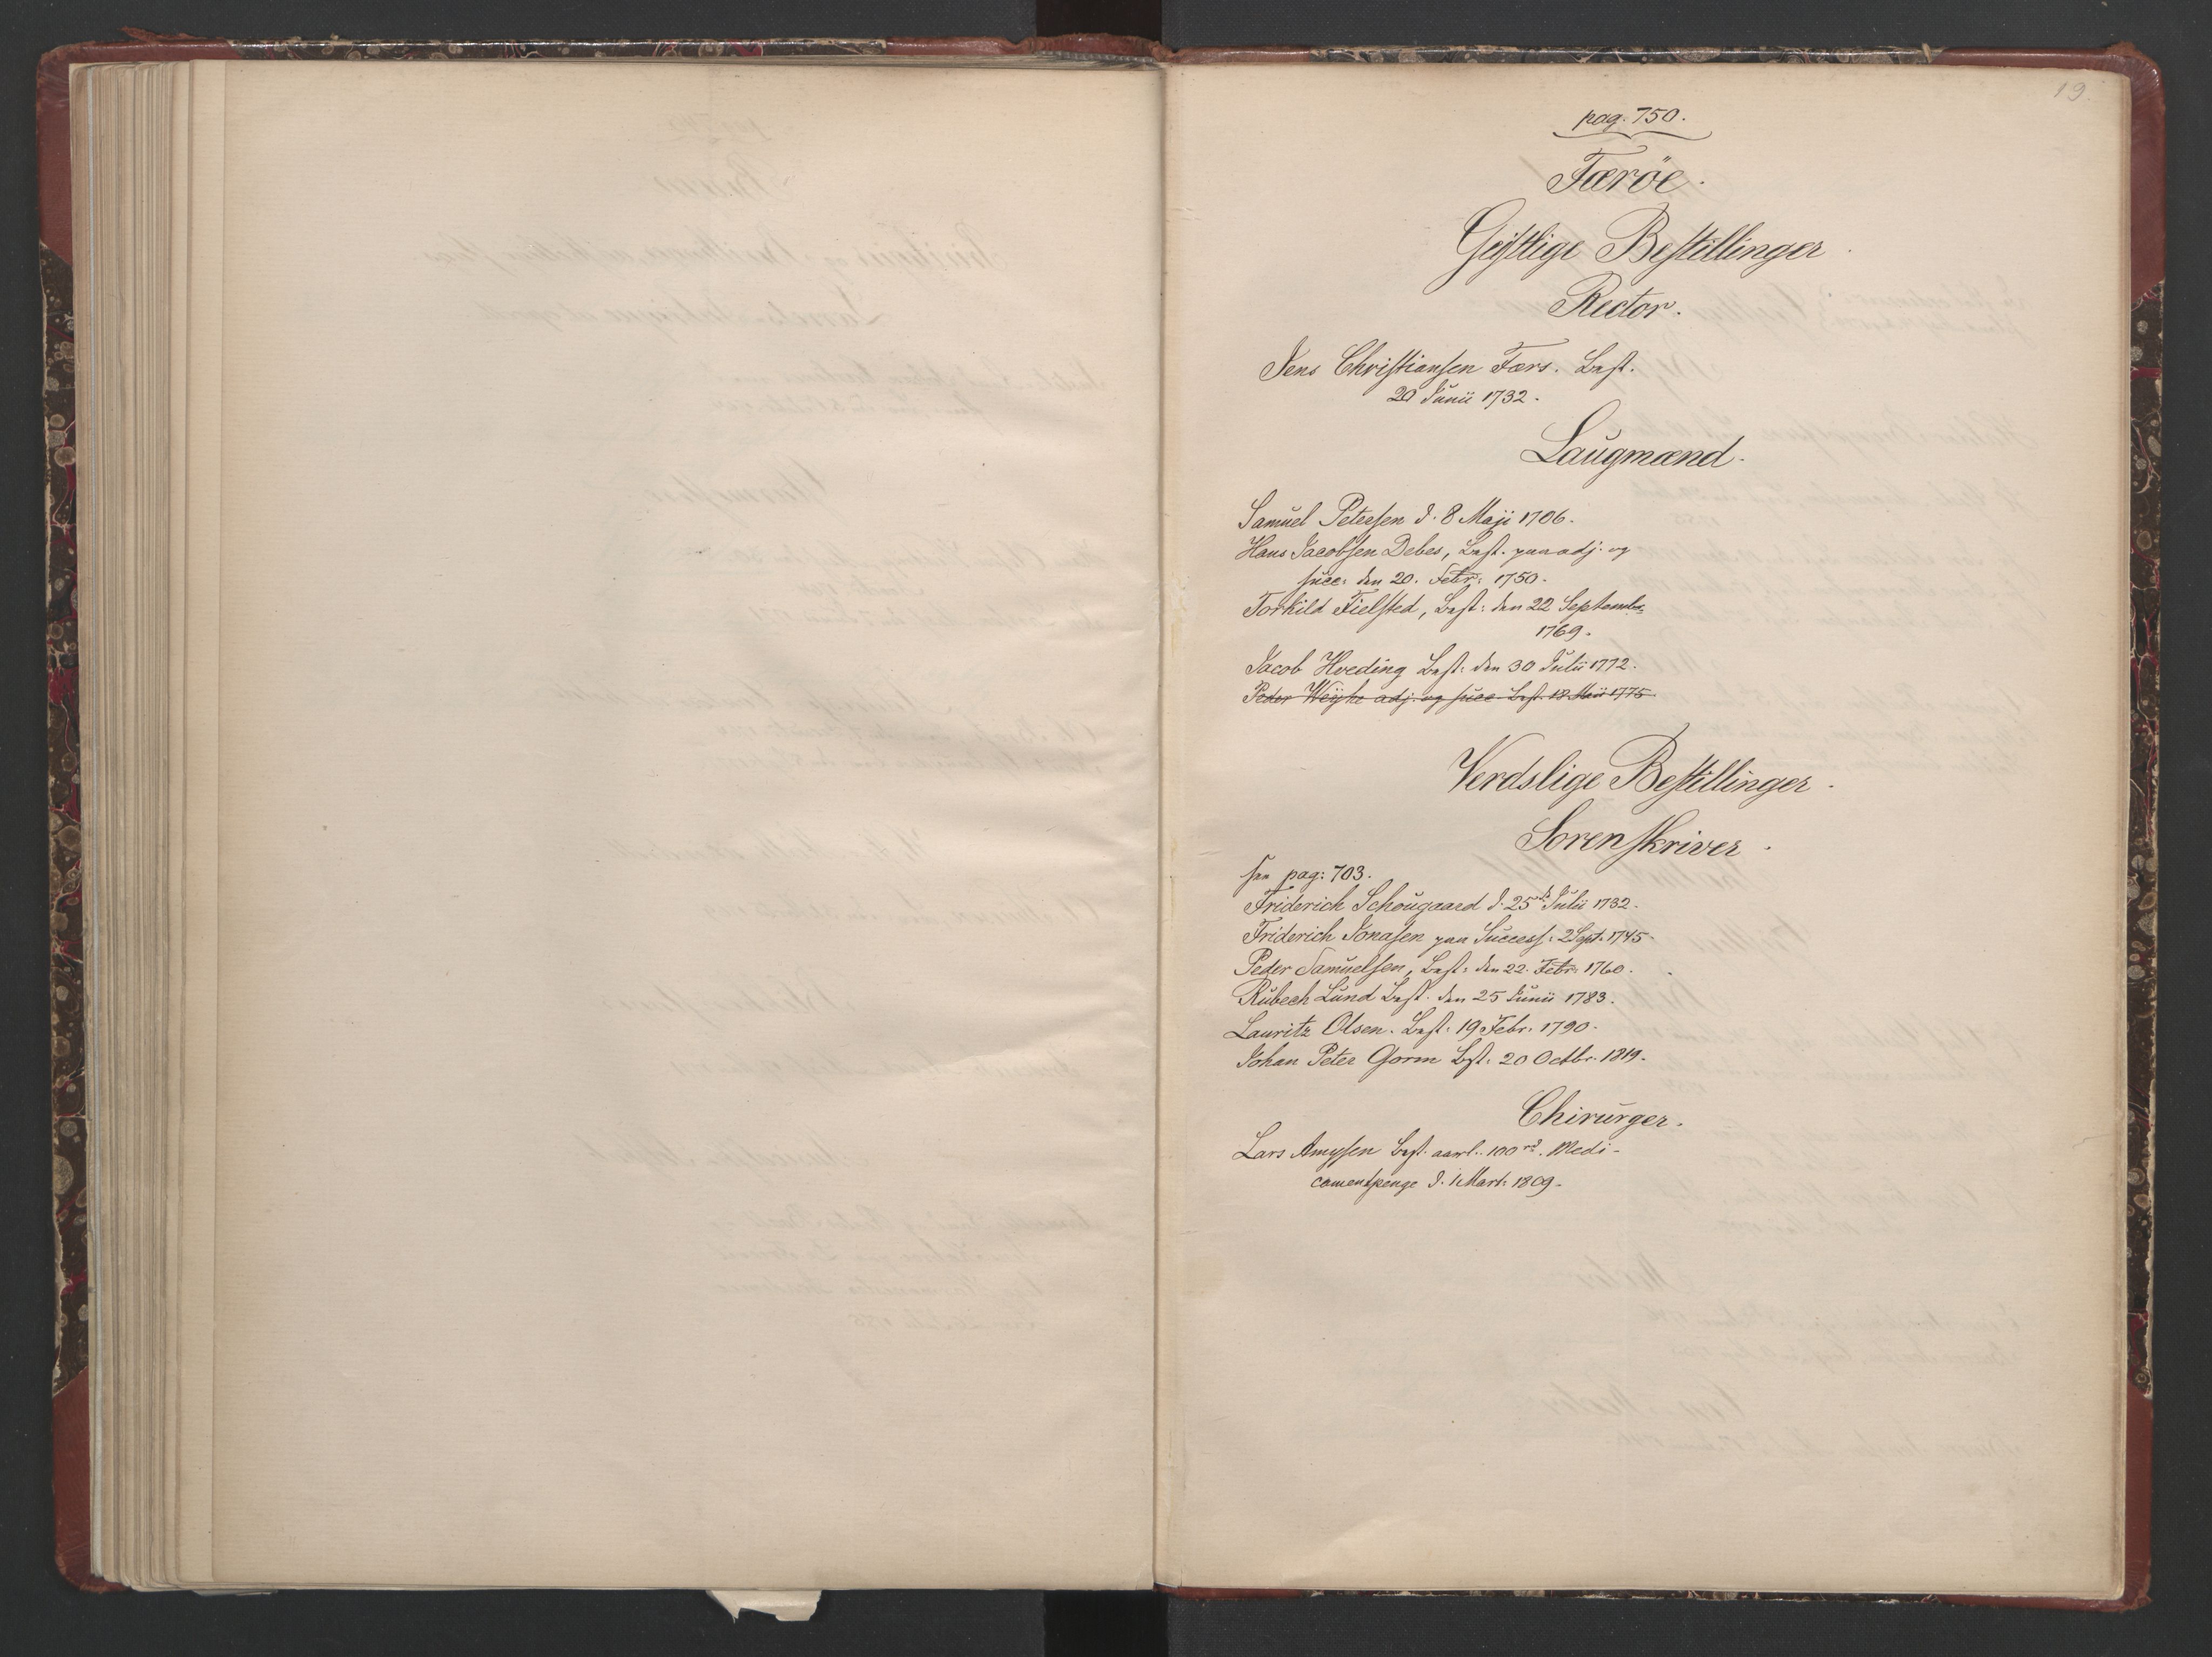 19.
pag. 750.
Færöe.
Gejstlige Bestillinger.
Rector.
Jens Christiansen Færs. Best.
20 Junii 1732.
Laugmænd.
Samuel Petersen d. 8 Maji 1706.
Hans Jacobsen Debes, Best. paa adj. og
succ: den 20. Febr: 1750.
Torkild Fielsted, Best: den 22 Septembr:
1769.
Jacob Hveding Best: den 30 Julii 1772.
Peder Weyhe adj. og succ. Best. 18 Maii 1775
Verdslige Bestillinger.
Sorenskriver.
see pag: 703.
Friderich Schougaard d. 25de Julii 1732.
Friderich Jonasen paa Success: 2 Sept. 1745.
Peder Samuelsen, Best: den 22. Febr: 1760.
Rubech Lund Best. den 25 Junii 1783.
Lauritz Olsen. Best: 19 Febr. 1790.
Johan Peter Gorm Bst: 20 Octbr. 1819.
Chirurger.
Lars Best. aarl. 100 rd. Medi-
camentpenge d. 1 Mart: 1809.